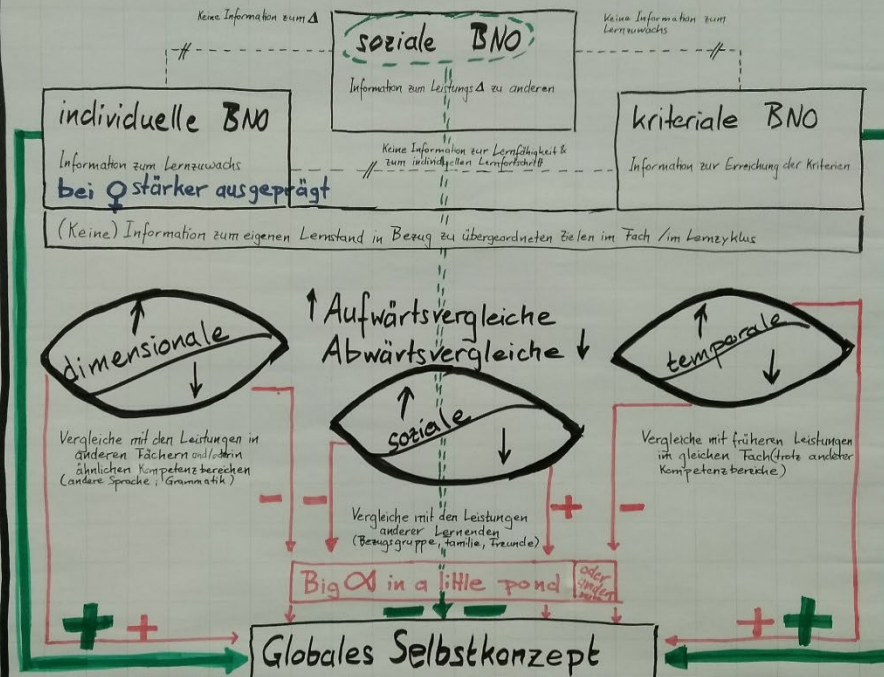 Keine Information zum Δ
soziale BNO
Keine Information zum
Lernzuwachs
Information zum Leistungs Δ zu anderen
individuelle BNO
Information zum Lernzuwachs
bei ♀ stärker ausgeprägt
Keine Information zur Lernfähigkeit &
zum individuellen Lernfortschritt
kriteriale BNO
Information zur Erreichung der Kriterien
(Keine) Information zum eigenen Lernstand in Bezug zu übergeordneten Zielen im Fach / im Lernzyklus
↑ Aufwärtsvergleiche
Abwärtsvergleiche ↓
↑
dimensionale
↓
↑
soziale
↓
↑
temporale
↓
Vergleiche mit den Leistungen in
anderen Fächern und/oder in
ähnlichen Kompetenzbereichen
(andere Sprache; Grammatik)
Vergleiche mit früheren Leistungen
im gleichen Fach (trotz anderer
Kompetenzbereiche)
Vergleiche mit den Leistungen
anderer Lernenden
(Bezugsgruppe, Familie, Freunde)
− − + −
Big in a little pond
oder
+ + − − + +
Globales Selbstkonzept